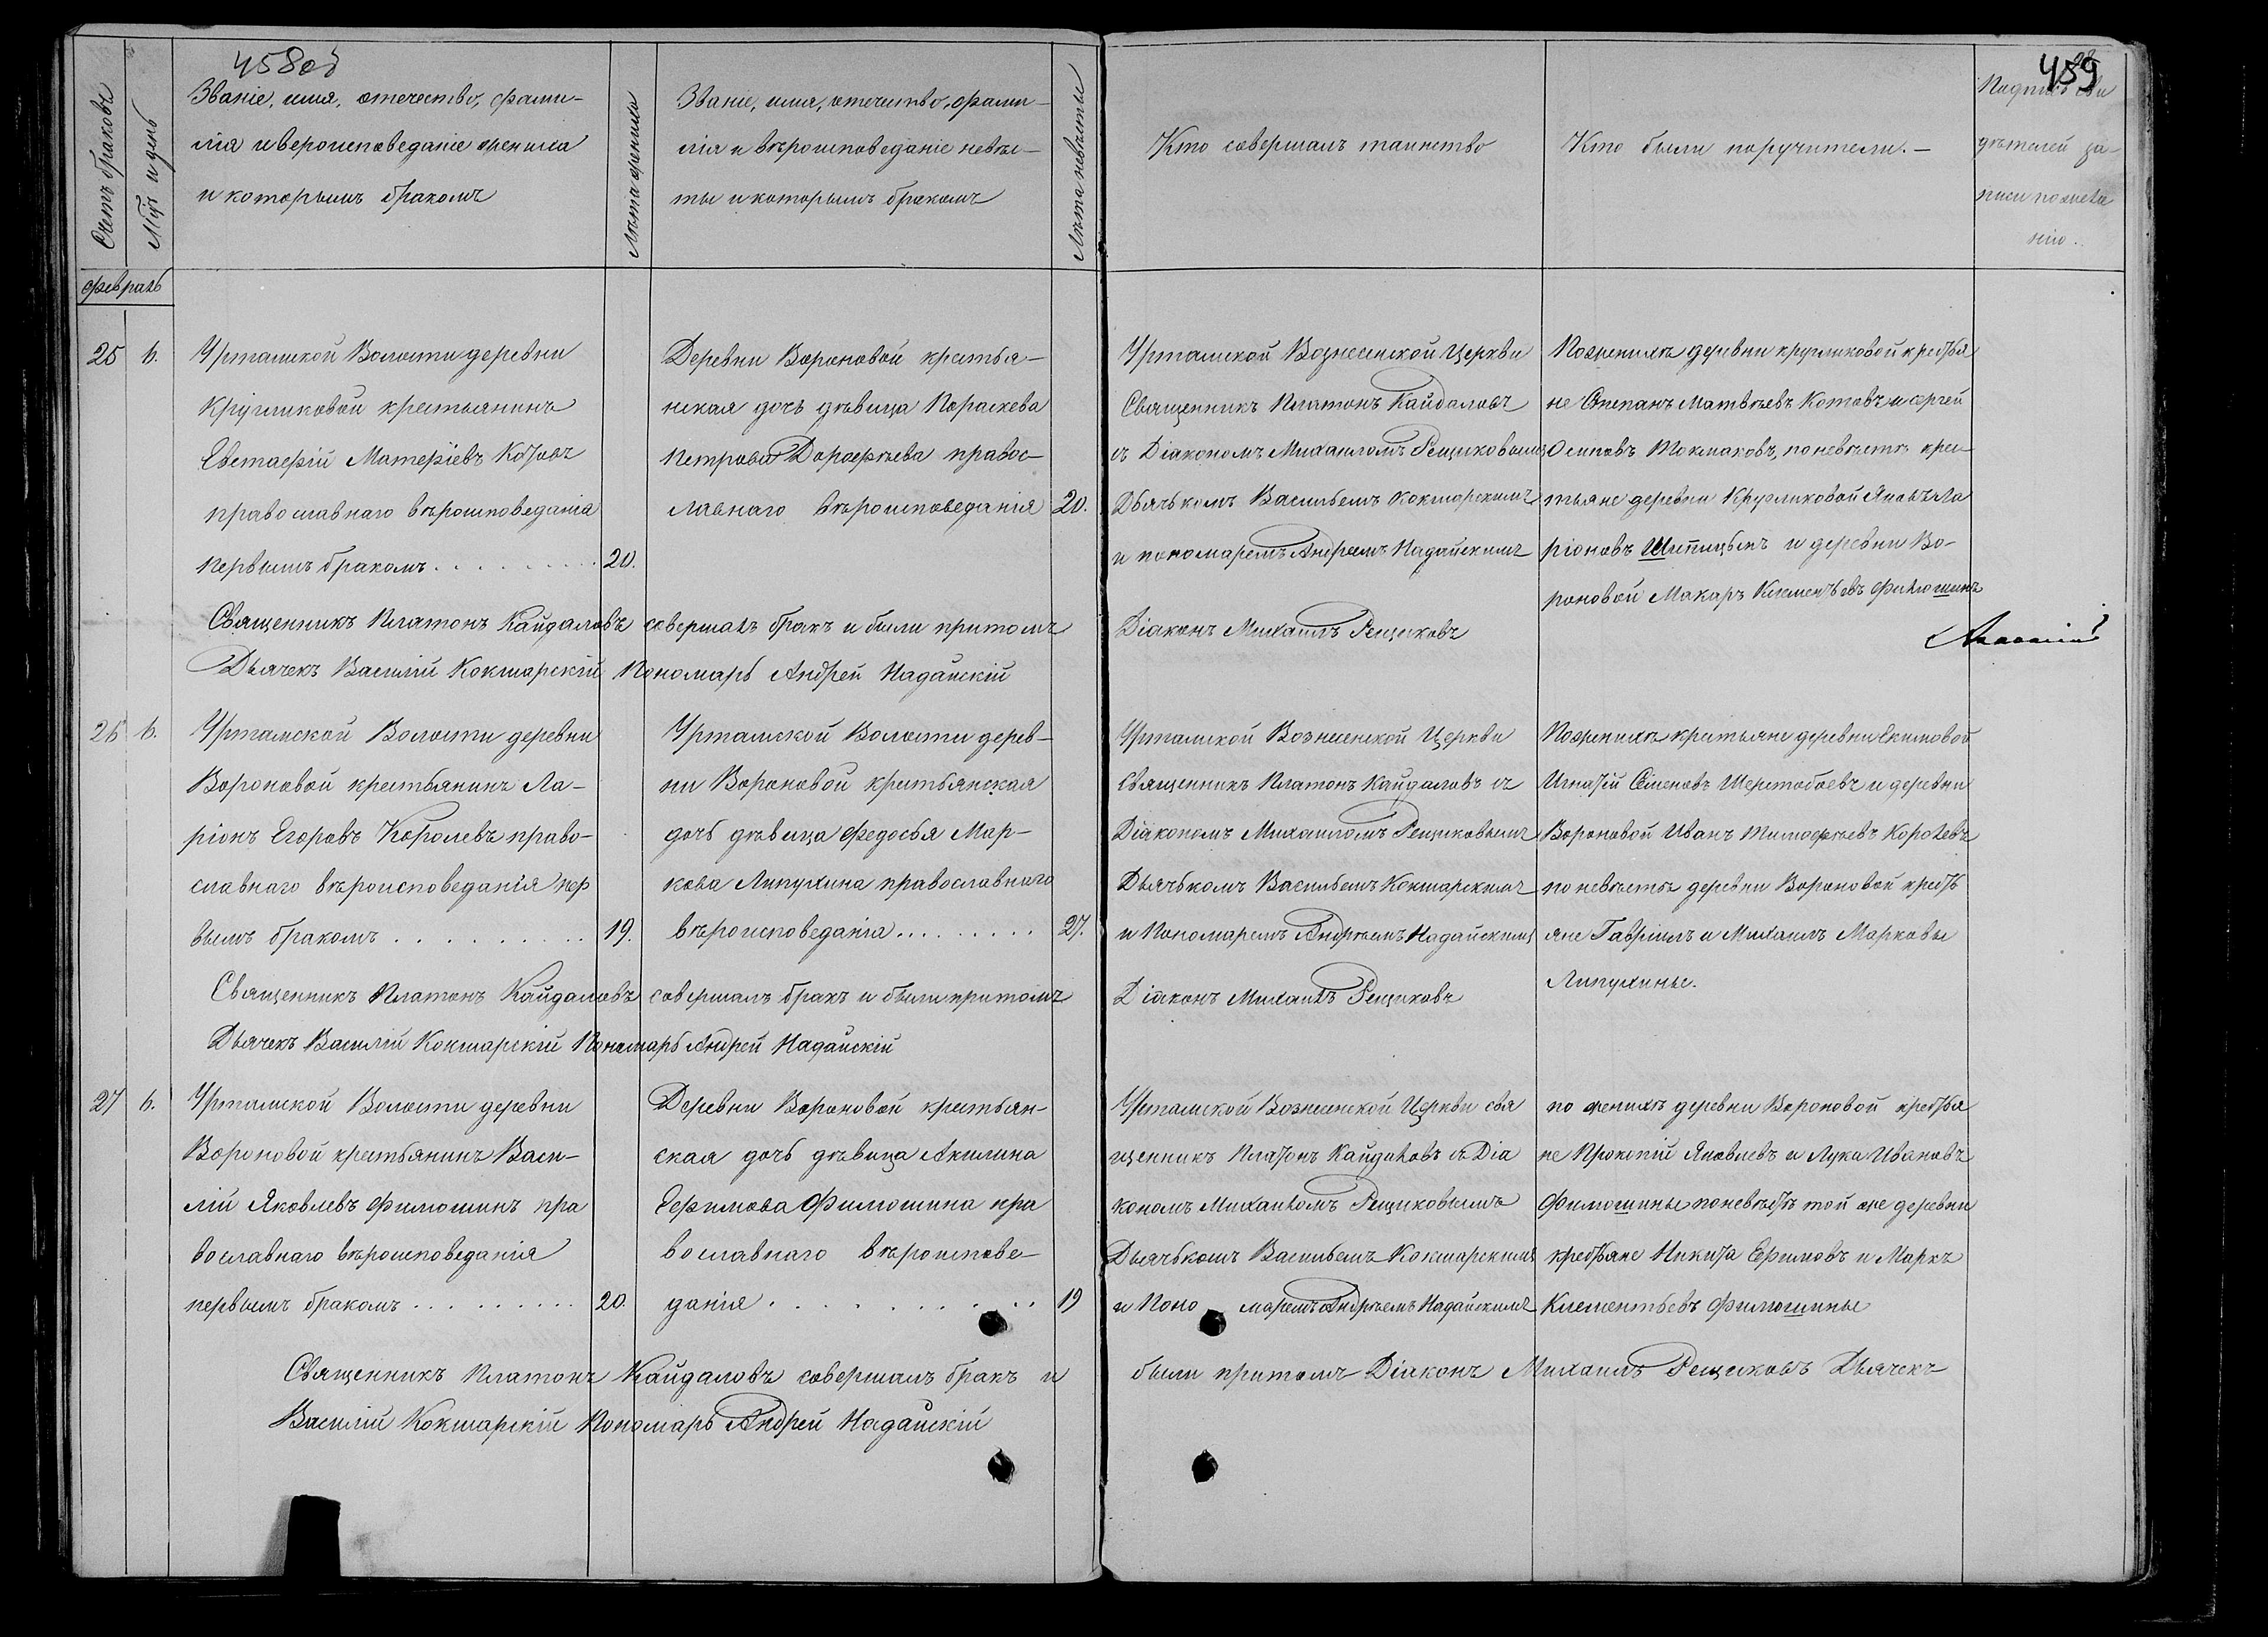 458об
459
Счетъ браковъ
Мцъ и день
Званіе, имя, отечество, фами-
лія и вероисповеданіе жениха
и которымъ бракомъ
Лѣта жениха
Званіе, имя, отечество, фами-
лія и вѣроисповеданіе невѣс-
ты и которымъ бракомъ
Лѣта невѣсты
Кто совершалъ таинство
Кто были поручители.-
дѣтелей за-
писи по жела
нію.
Февраль
25 6.
Уртамской Волости деревни
Кругликовой крестьянинъ
Евстафій Котовъ
православнаго вѣроисповеданія
первымъ бракомъ . . . . . . . . 20.
Деревни Вороновой крестья-
нская дочь дѣвица Параскева
Петрова Дорофѣева правос-
лавнаго вѣроисповеданія 20.
Уртамской Вознесенской Церкви
Священникъ Платонъ Кайдаловъ
съ Діакономъ Михаиломъ Рещиковымъ
Дьячькомъ Васильемъ Кокшарскимъ
и пономаремъ Андреемъ Надайскимъ
По женихѣ деревни кругликовой крестья
не Степанъ Матвѣевъ Котовъ и сергей
Осиповъ Токмаковъ, по невѣстѣ крес
тьяне деревни Кругликовой Яковъ Ла
ріоновъ Шипицынъ и деревни Во-
роновой Макаръ Клементьевъ Филюшинъ
Священникъ Платонъ Кайдаловъ совершалъ бракъ и были притомъ Діаконъ Михаилъ Рещиковъ
Дьячекъ Василій Кокшарскій Пономарь Андрей Надайскій
26 6.
Уртамской Волости деревни
Вороновой крестьянинъ Ла-
ріонъ Егоровъ Королевъ право-
славнаго вѣроисповеданія пер
вымъ бракомъ . . . . . . . . . . 19.
Уртамской Волости дерев-
ни Вороновой крестьянская
дочь дѣвица Федосья Мар-
кова Липухина православнаго
вѣроисповеданія . . . . . . . . 27.
Уртамской Вознесенской Церкви
Священникъ Платонъ Кайдаловъ съ
Діакономъ Михаиломъ Рещиковымъ
Дьячькомъ Васильемъ Кокшарскимъ
и Пономаремъ Андрѣемъ Надайскимъ
По женихѣ крестьяне деревни Екимовой
Игнатій Семеновъ Шерстобоевъ и деревни
Вороновой Иванъ Тимофѣевъ Королевъ
по невѣсте деревни Вороновой кресть
яне Гавріилъ и Михаилъ Марковы
Липухины.
Священникъ Платонъ Кайдаловъ совершалъ бракъ и были притомъ Діаконъ Михаилъ Рещиковъ
Дьячекъ Василій Кокшарскій Пономарь Андрей Надайскій
27 6.
Уртамской Волости деревни
Вороновой крестьянинъ Васи-
лій Яковлевъ Филюшинъ пра
вославнаго вѣроисповеданія
первымъ бракомъ . . . . . . . . . 20.
Деревни Вороновой крестьян-
ская дочь дѣвица Акилина
Ефимова Филюшина пра
вославнаго вѣроиспове-
данія . . . . . . . . . . 19
Уртамской Вознесенской Церкви свя
щенникъ Платонъ Кайдаловъ съ Діа
кономъ Михаиломъ Рещиковымъ
Дьячькомъ Васильемъ Кокшарскимъ
и Поно маремъ Андрѣемъ Надайскимъ
по женихѣ деревни Вороновой крестья
не Прокопій Яковлевъ и Лука Ивановъ
Филюшины по невѣстѣ той же деревни
крестьяне Никита Ефимовъ и Маркъ
Клементьевъ Филюшины
Священникъ Платонъ Кайдаловъ совершалъ бракъ и были притомъ Діаконъ Михаилъ Рещиковъ Дьячекъ
Василій Кокшарскій Пономарь Андрей Надайскій